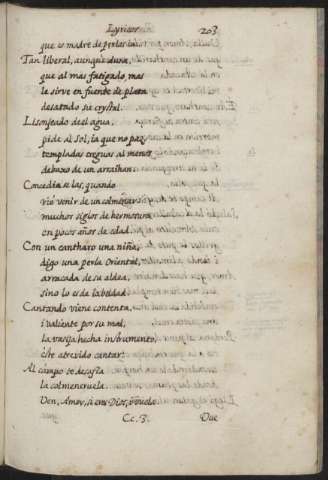 Lyricos 203
que es madre de perlas ia
Tan liberal, aunque dura,
que al mas fatigado, mas
le sirve en fuente de plata
desatado su crystal.
Lisonjeado de el agua,
pide al Sol, ia que no paz
templadas treguas al menos
debaxo de un arraihan
Concediaselas, quando
vió venir de un colmenar
muchos siglos de hermosura
en pocos años de edad.
Con un cantharo una niña,
digo una perla Oriental,
arracada de su aldea,
sino lo es de la beldad.
Cantando viene contenta,
i valiente por su mal,
la vasija hecha instrumento
este atrevido cantar.
Al campo te desafia
la colmeneruela
Ven, Amor, si eres Dios, i vuela
Cc. 3. Que